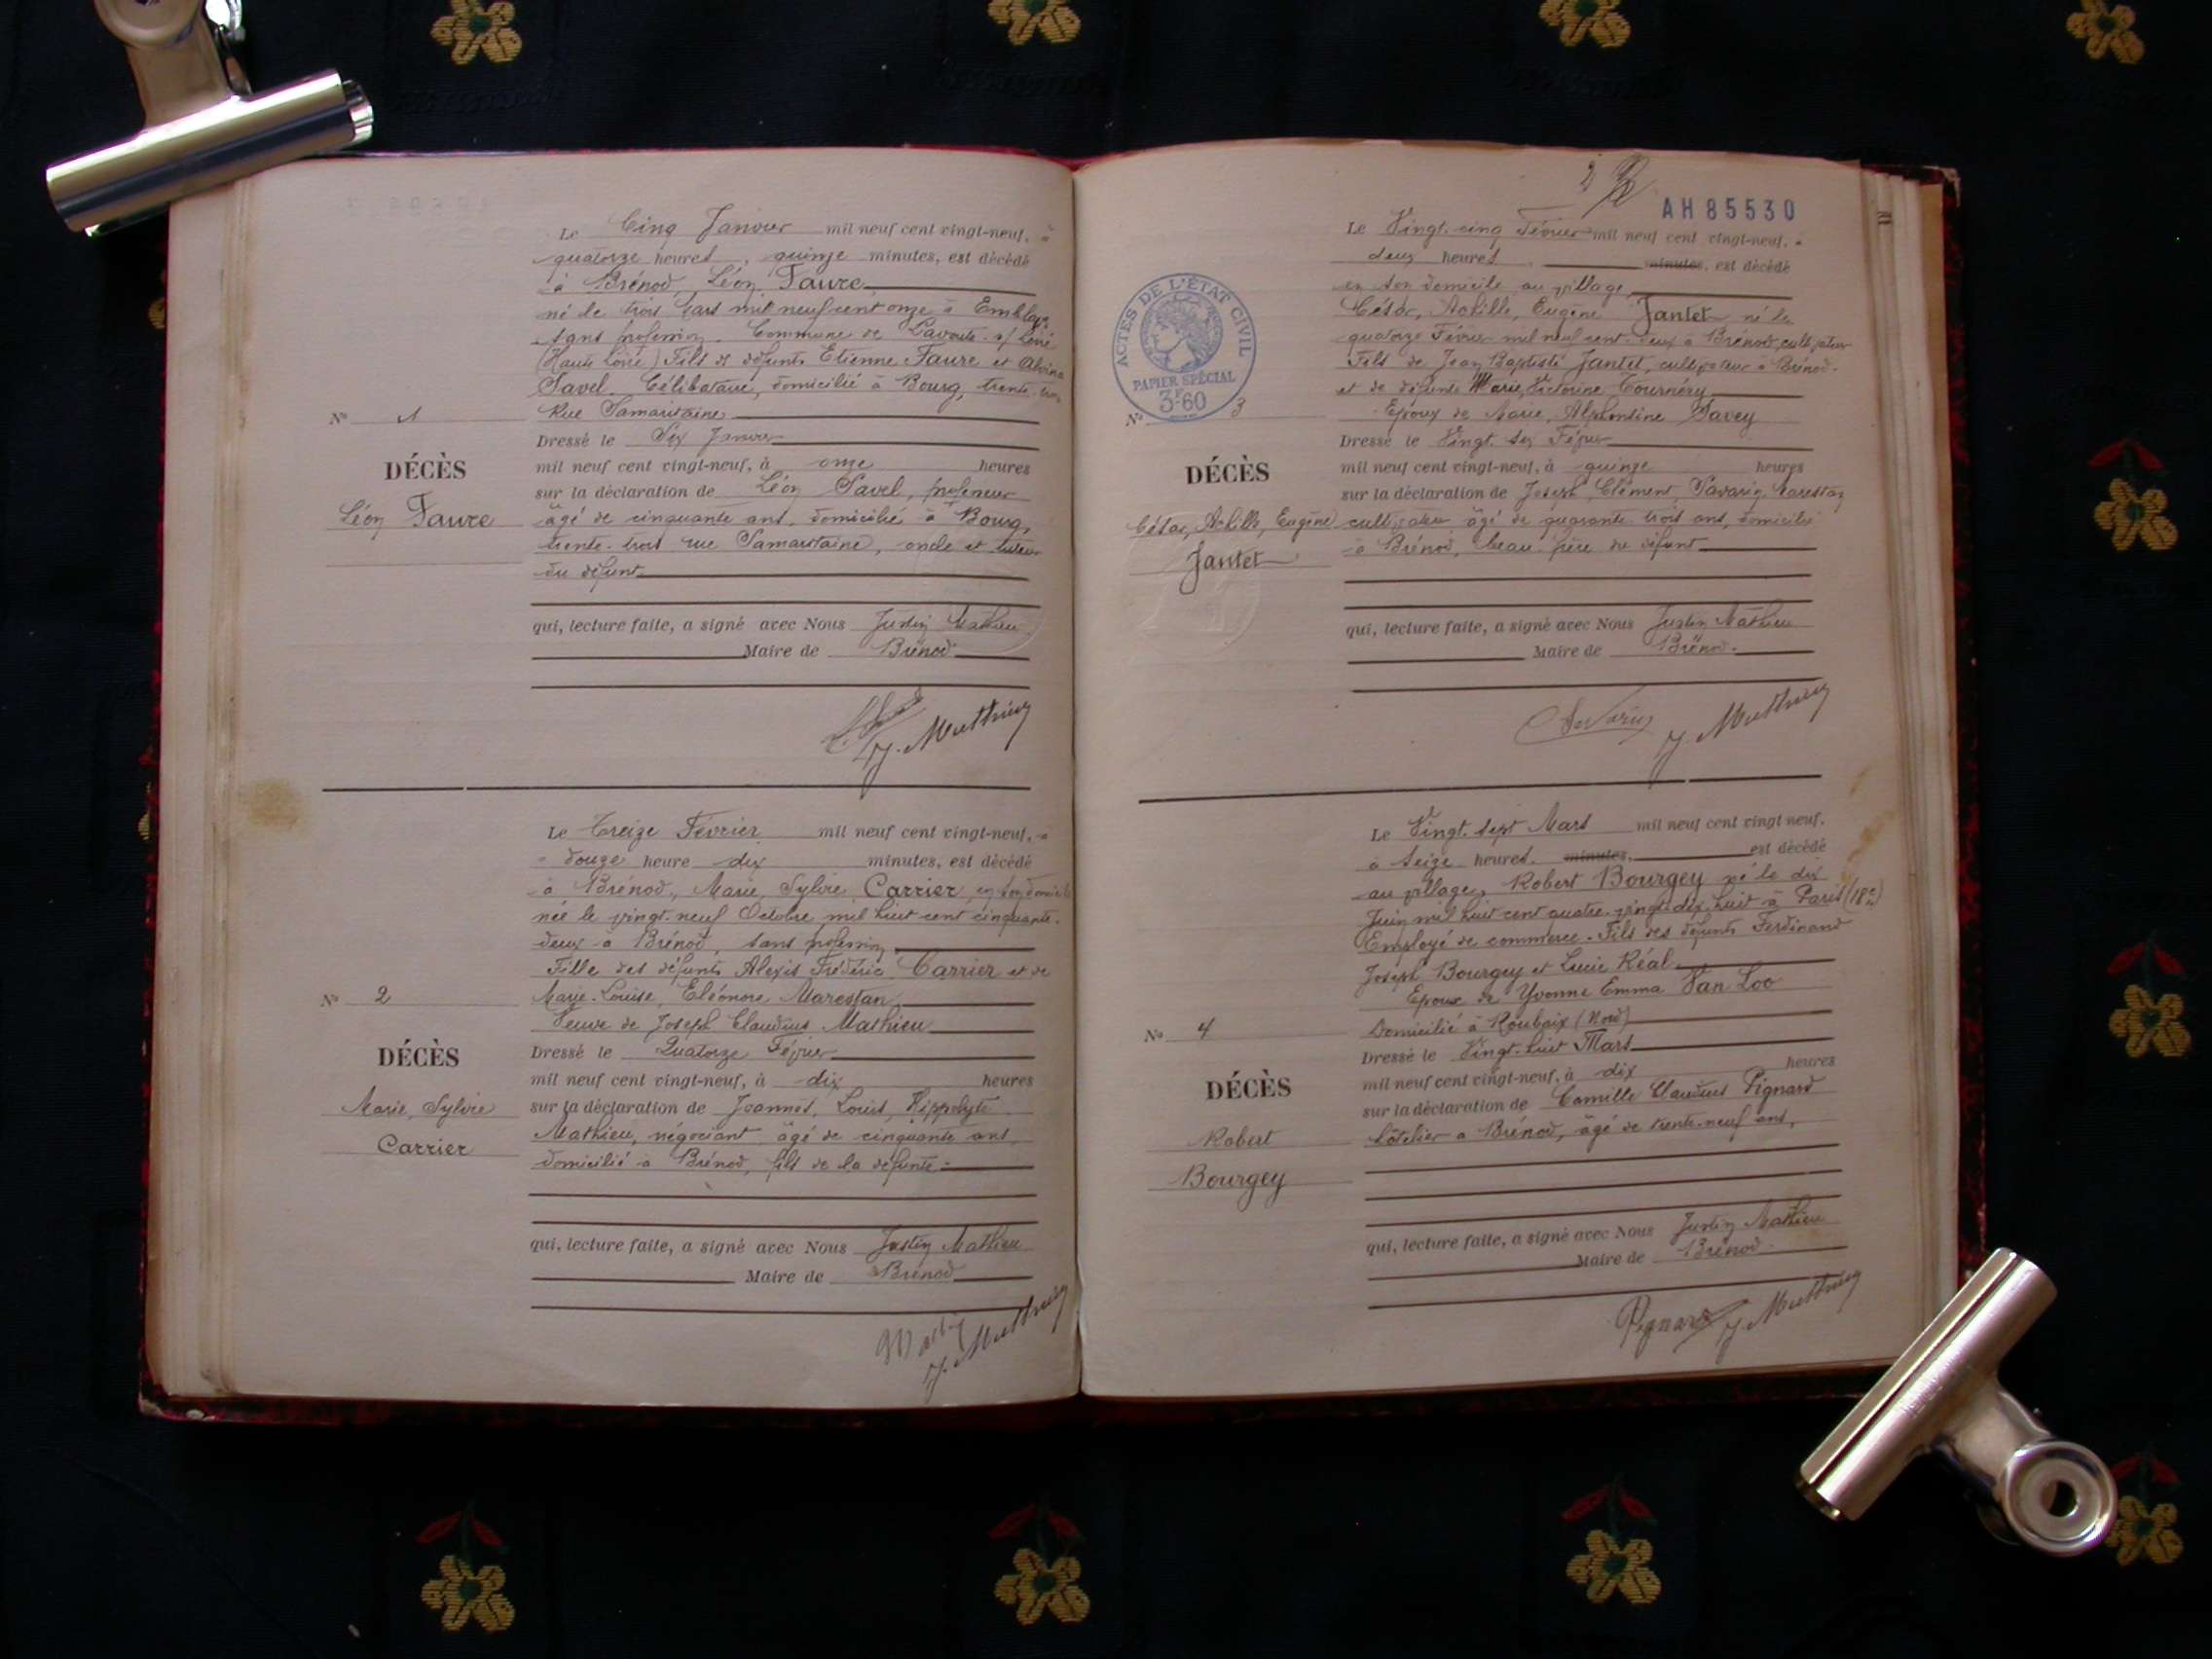 Le Cinq Janvier mil neuf cent vingt-neuf, à
quatorze heures, quinze minutes, est décédé
à Brénod, Léon Faure
né le trois Mars mil neuf cent onze à
sans profession. Commune de Lavoute s/ Loire
(Haute Loire) Fils de défunts Etienne Faure et
Savel. Célibataire, domicilié à Bourg, trente-trois
Rue Samaritaine
Nº 1
Dressé le Six Janvier
DÉCÈS
mil neuf cent vingt-neuf, à onze heures
sur la déclaration de Léon Savel, professeur
Léon Faure
âgé de cinquante ans, domicilié à Bourg,
trente-trois rue Samaritaine, oncle et tuteur
du défunt
qui, lecture faite, a signé avec Nous Justin Mathieu
Maire de Brénod
J. Matthieu
Le Treize Février mil neuf cent vingt-neuf, à
douze heure dix minutes, est décédé
à Brénod, Marie, Sylvie Carrier, en son domicile
née le vingt-neuf Octobre mil huit cent cinquante-
deux à Brénod, sans profession
Fille des défunts Alexis Frédéric Carrier et de
Nº 2
Marie-Louise, Eléonore Marestan
Veuve de Joseph Claudius Mathieu
Dressé le Quatorze Février
DÉCÈS
mil neuf cent vingt-neuf, à dix heures
Marie, Sylvie
sur la déclaration de Joannès, Louis, Hippolyte
Mathieu, négociant âgé de cinquante ans
Carrier
domicilié à Brénod, fils de la défunte
qui, lecture faite, a signé avec Nous Justin Mathieu
Maire de Brénod
J. Matthieu
2
AH 85530
Le Vingt-cinq Février mil neuf cent vingt-neuf, à
deux heures minutes, est décédé
en son domicile au village
César, Achille, Eugène Jantet né le
quatorze Février mil neuf cent deux à Brénod cultivateur
Fils de Jean Baptiste Jantet, cultivateur à Brénod
et de défunte Marie, Victorine Tournéry
Epoux de Marie, Alphonsine Savey
ACTES DE L'ÉTAT CIVIL
PAPIER SPÉCIAL
3F60
Nº 3
Dressé le Vingt-six Février
DÉCÈS
mil neuf cent vingt-neuf, à quinze heures
sur la déclaration de Joseph, Clément, Savarin Marestan
César, Achille, Eugène
Jantet
cultivateur âgé de quarante trois ans, domicilié
à Brénod, beau-père du défunt
qui, lecture faite, a signé avec Nous Justin Mathieu
Maire de Brénod
Savarin J. Matthieu
Le Vingt-sept Mars mil neuf cent vingt neuf,
à seize heures. minutes, est décédé
au village, Robert Bourgey né le dix
Juin mil huit cent quatre-vingt-dix huit à Paris (18e)
Employé de commerce. Fils des défunts Ferdinand
Joseph Bourgey et Lucie Réal
Epoux de Yvonne Emma Van Loo
Nº 4
Domicilié à Roubaix (Nord)
Dressé le Vingt-huit Mars
DÉCÈS
mil neuf cent vingt-neuf, à dix heures
sur la déclaration de Camille Claudius Pignard
Robert
Bourgey
hôtelier a Brénod, âgé de trente-neuf ans,
qui, lecture faite, a signé avec Nous Justin Mathieu
Maire de Brénod
Pignard J. Matthieu